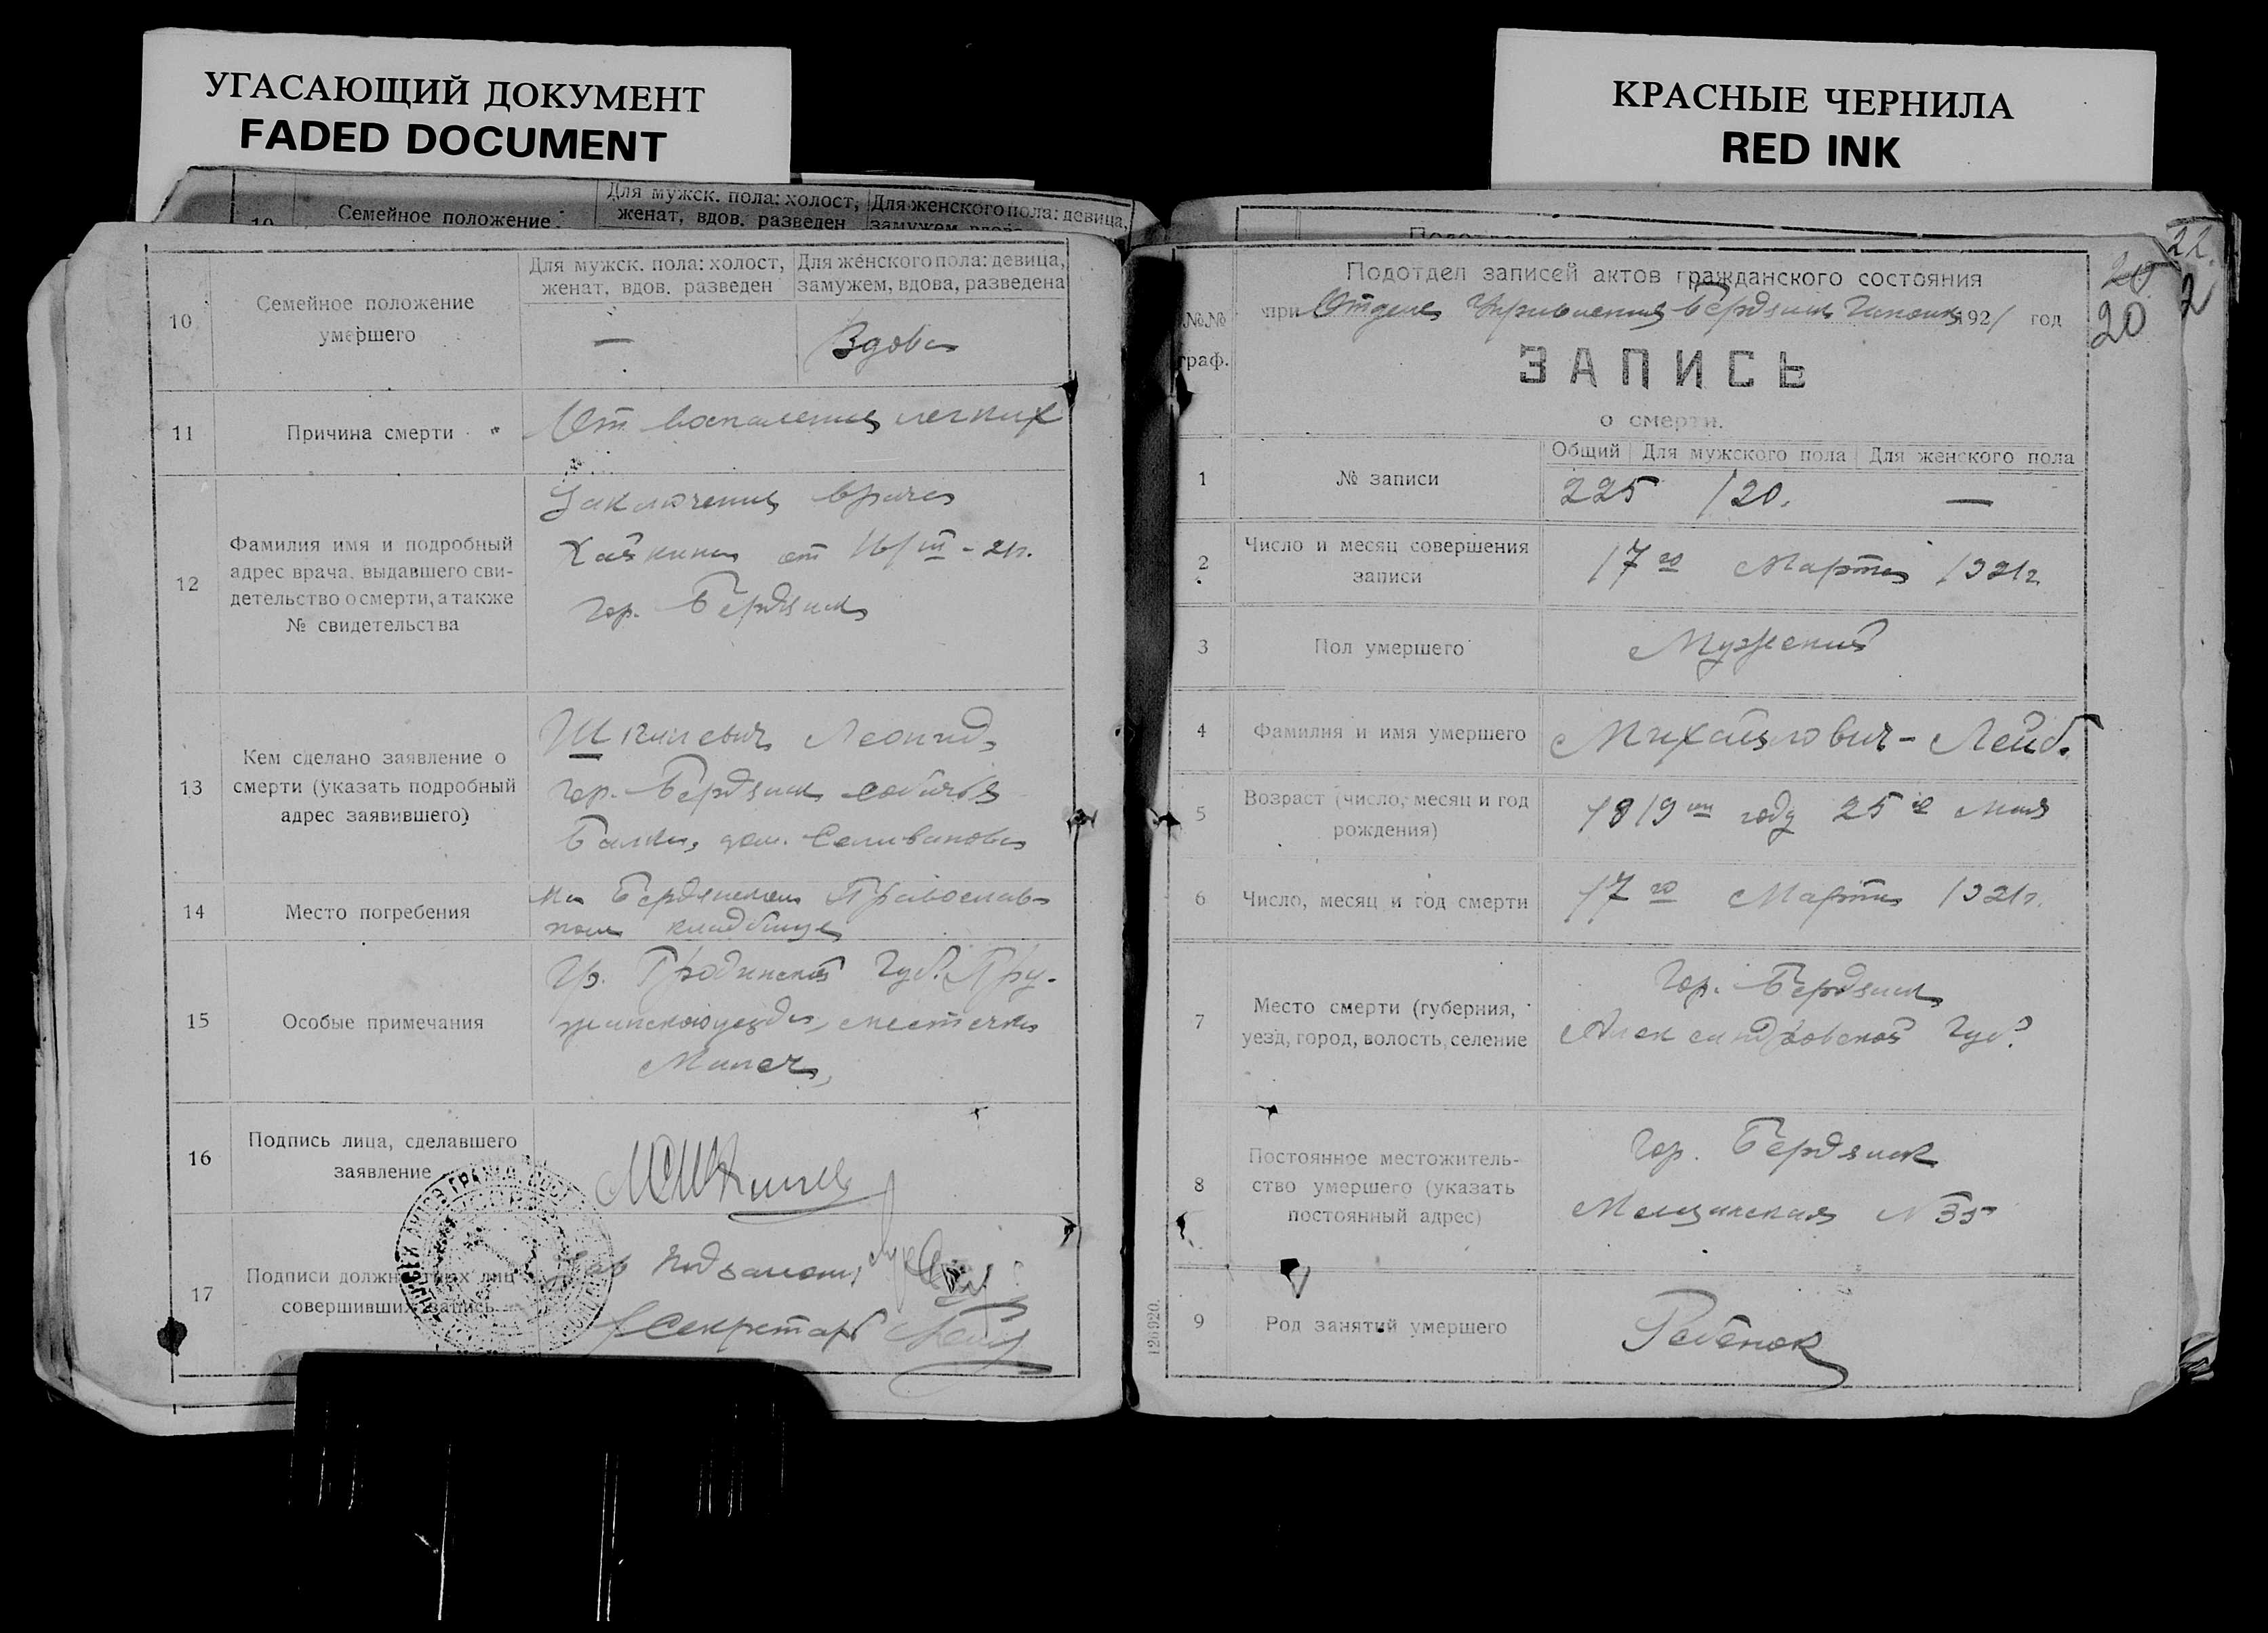 УГАСАЮЩИЙ ДОКУМЕНТ
FADED DOCUMENT
КРАСНЫЕ ЧЕРНИЛА
RED INK
10 Семейное положение
Для мужск. пола: холост, женат, вдов. разведен
Для женского пола: девица, замужем
10
Семейное положение
умершего
Для мужск. пола: холост,
женат, вдов. разведен
Для женского пола: девица,
замужем, вдова, разведена
—
Вдова
11
Причина смерти
От воспаления легких
12
Фамилия имя и подробный
адрес врача, выдавшего сви-
детельство о смерти, а также
№ свидетельства
Заключение врача
Хайкина от 16/III - 21г.
гор. Бердянск
13
Кем сделано заявление о
смерти (указать подробный
адрес заявившего)
Леонид
гор. Бердянск собачья
Балка, дом. Селиванова
14
Место погребения
На Бердянском Православ-
ном кладбище
15
Особые примечания
Гр. Гродненской Губ. Пру-
жанского уезда, местечка
Малеч,
16
Подпись лица, сделавшего
заявление
17
Подписи должностных лиц
совершивших запись
Зав
Секретарь
№№
граф.
Подотдел записей актов гражданского состояния
при Отделе Управления Бердянск 1921 год
22.
20
20
2
ЗАПИСЬ
о смерти.
1
№ записи
Общий Для мужского пола Для женского пола
225 120. —
2
Число и месяц совершения
записи
17го Марта 1921г.
3
Пол умершего
Мужской
4
Фамилия и имя умершего
Михайлович - Лейб.
5
Возраст (число, месяц и год
рождения)
1919м году 25го мая
6
Число, месяц и год смерти
17го Марта 1921г.
7
Место смерти (губерния,
уезд, город, волость, селение
Гор. Бердянск
Александровской Губ.
8
Постоянное местожитель-
ство умершего (указать
постоянный адрес)
Гор. Бердянск
Мещанская N 35
9
Род занятий умершего
Ребенок
126920.